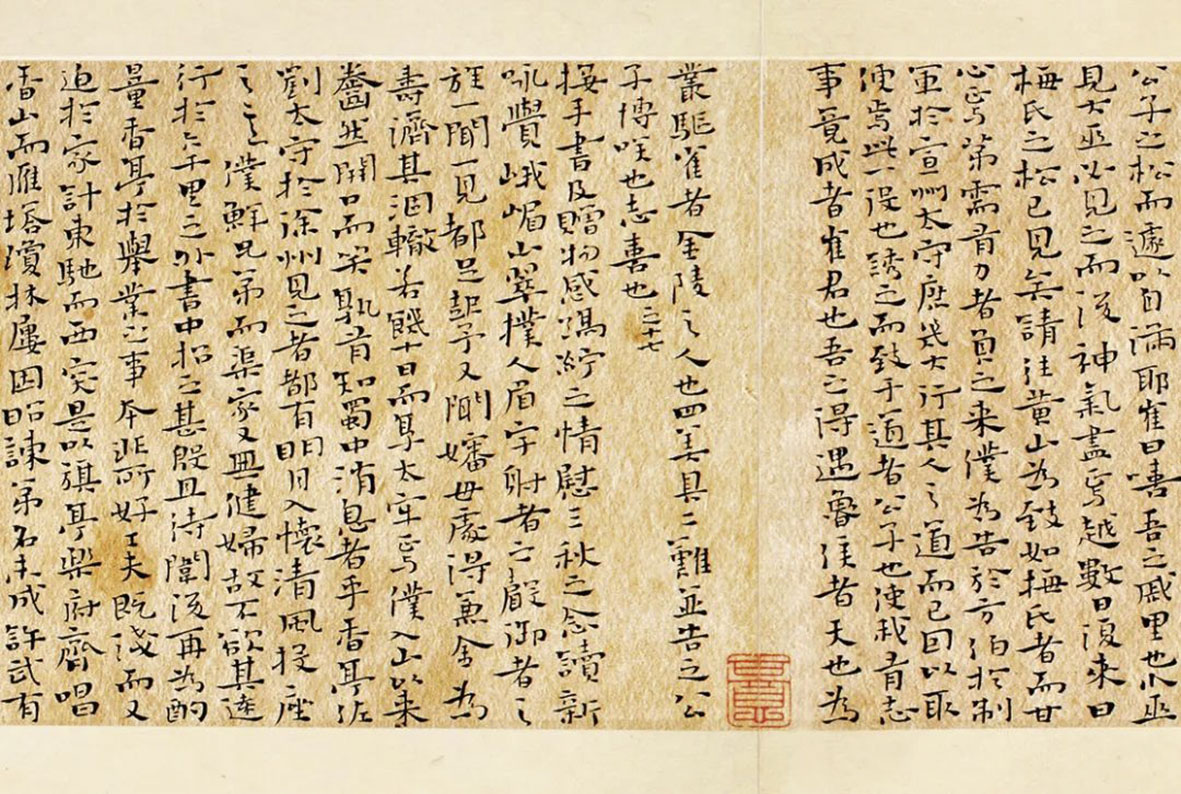 公子之松而遽以自滿耶崔曰嘻吾之戚里也小巫
見大巫必見之而後神氣盡焉越數日復來曰
梅氏之松已見矣請往黃山為致如梅氏者而甘
心焉第需有力者負之來僕為告於方伯於制
軍於宣州太守庶幾大行其人之道而已因以取
便焉此一役也誘之而致于道者公子也使我有志
事竟成者崔君也吾之得遇魯侯者天也為
叢驅雀者金陵之人也四美具二難並告之公
子博咲也志喜也二十七
接手書及贈物感縞紵之情慰三秋之念讀新
咏覺峨嵋山翠撲人眉宇射者之嚴御者之
旌一聞一見都足起予又聞嬸母處得兼金為
壽濟其涸轍若饑十日而享太牢焉僕入山以來
齤然開口而笑孰有知蜀中消息者乎香亭依
劉太守於徐州見之者都有明月入懷清風投座
之意僕鮮兄弟而渠家又無健婦故不欲其遠
行於千里之外書中招之甚殷且待闈後再為酌
量香亭於舉業之事本非所好工夫既淺而又
迫於家計東馳而西突是以旗亭樂府齊唱
香山而雁塔瓊林屢困昭諫弟名未成許武有